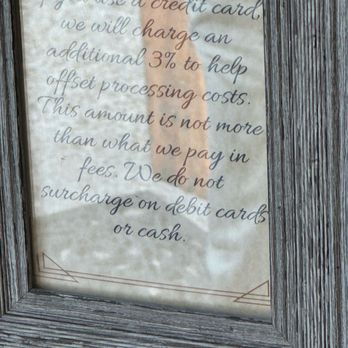 use a credit card,
we will charge an
additional 3% to help
offset processing costs.
This amount is not more
than what we pay in
fees. We do not
surcharge on debit cards
or cash.